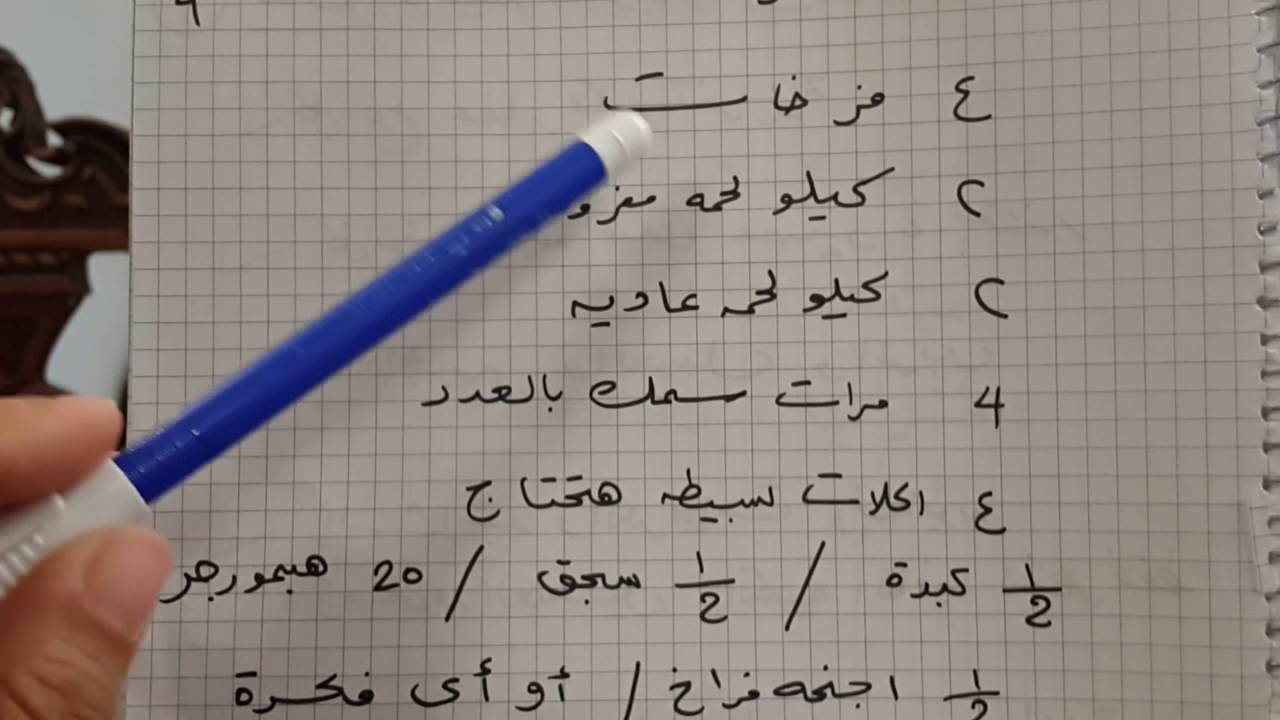 ٤ فرخات
٢ كيلو لحمه مفرو
٢ كيلو لحمه عاديه
4 مرات سمك بالعدد
٤ اكلات بسيطه هتحتاج
١/2 كبدة / ١/2 سجق / 20 هيمبورجر
١/2 اجنحه فراخ / أو أى فكرة